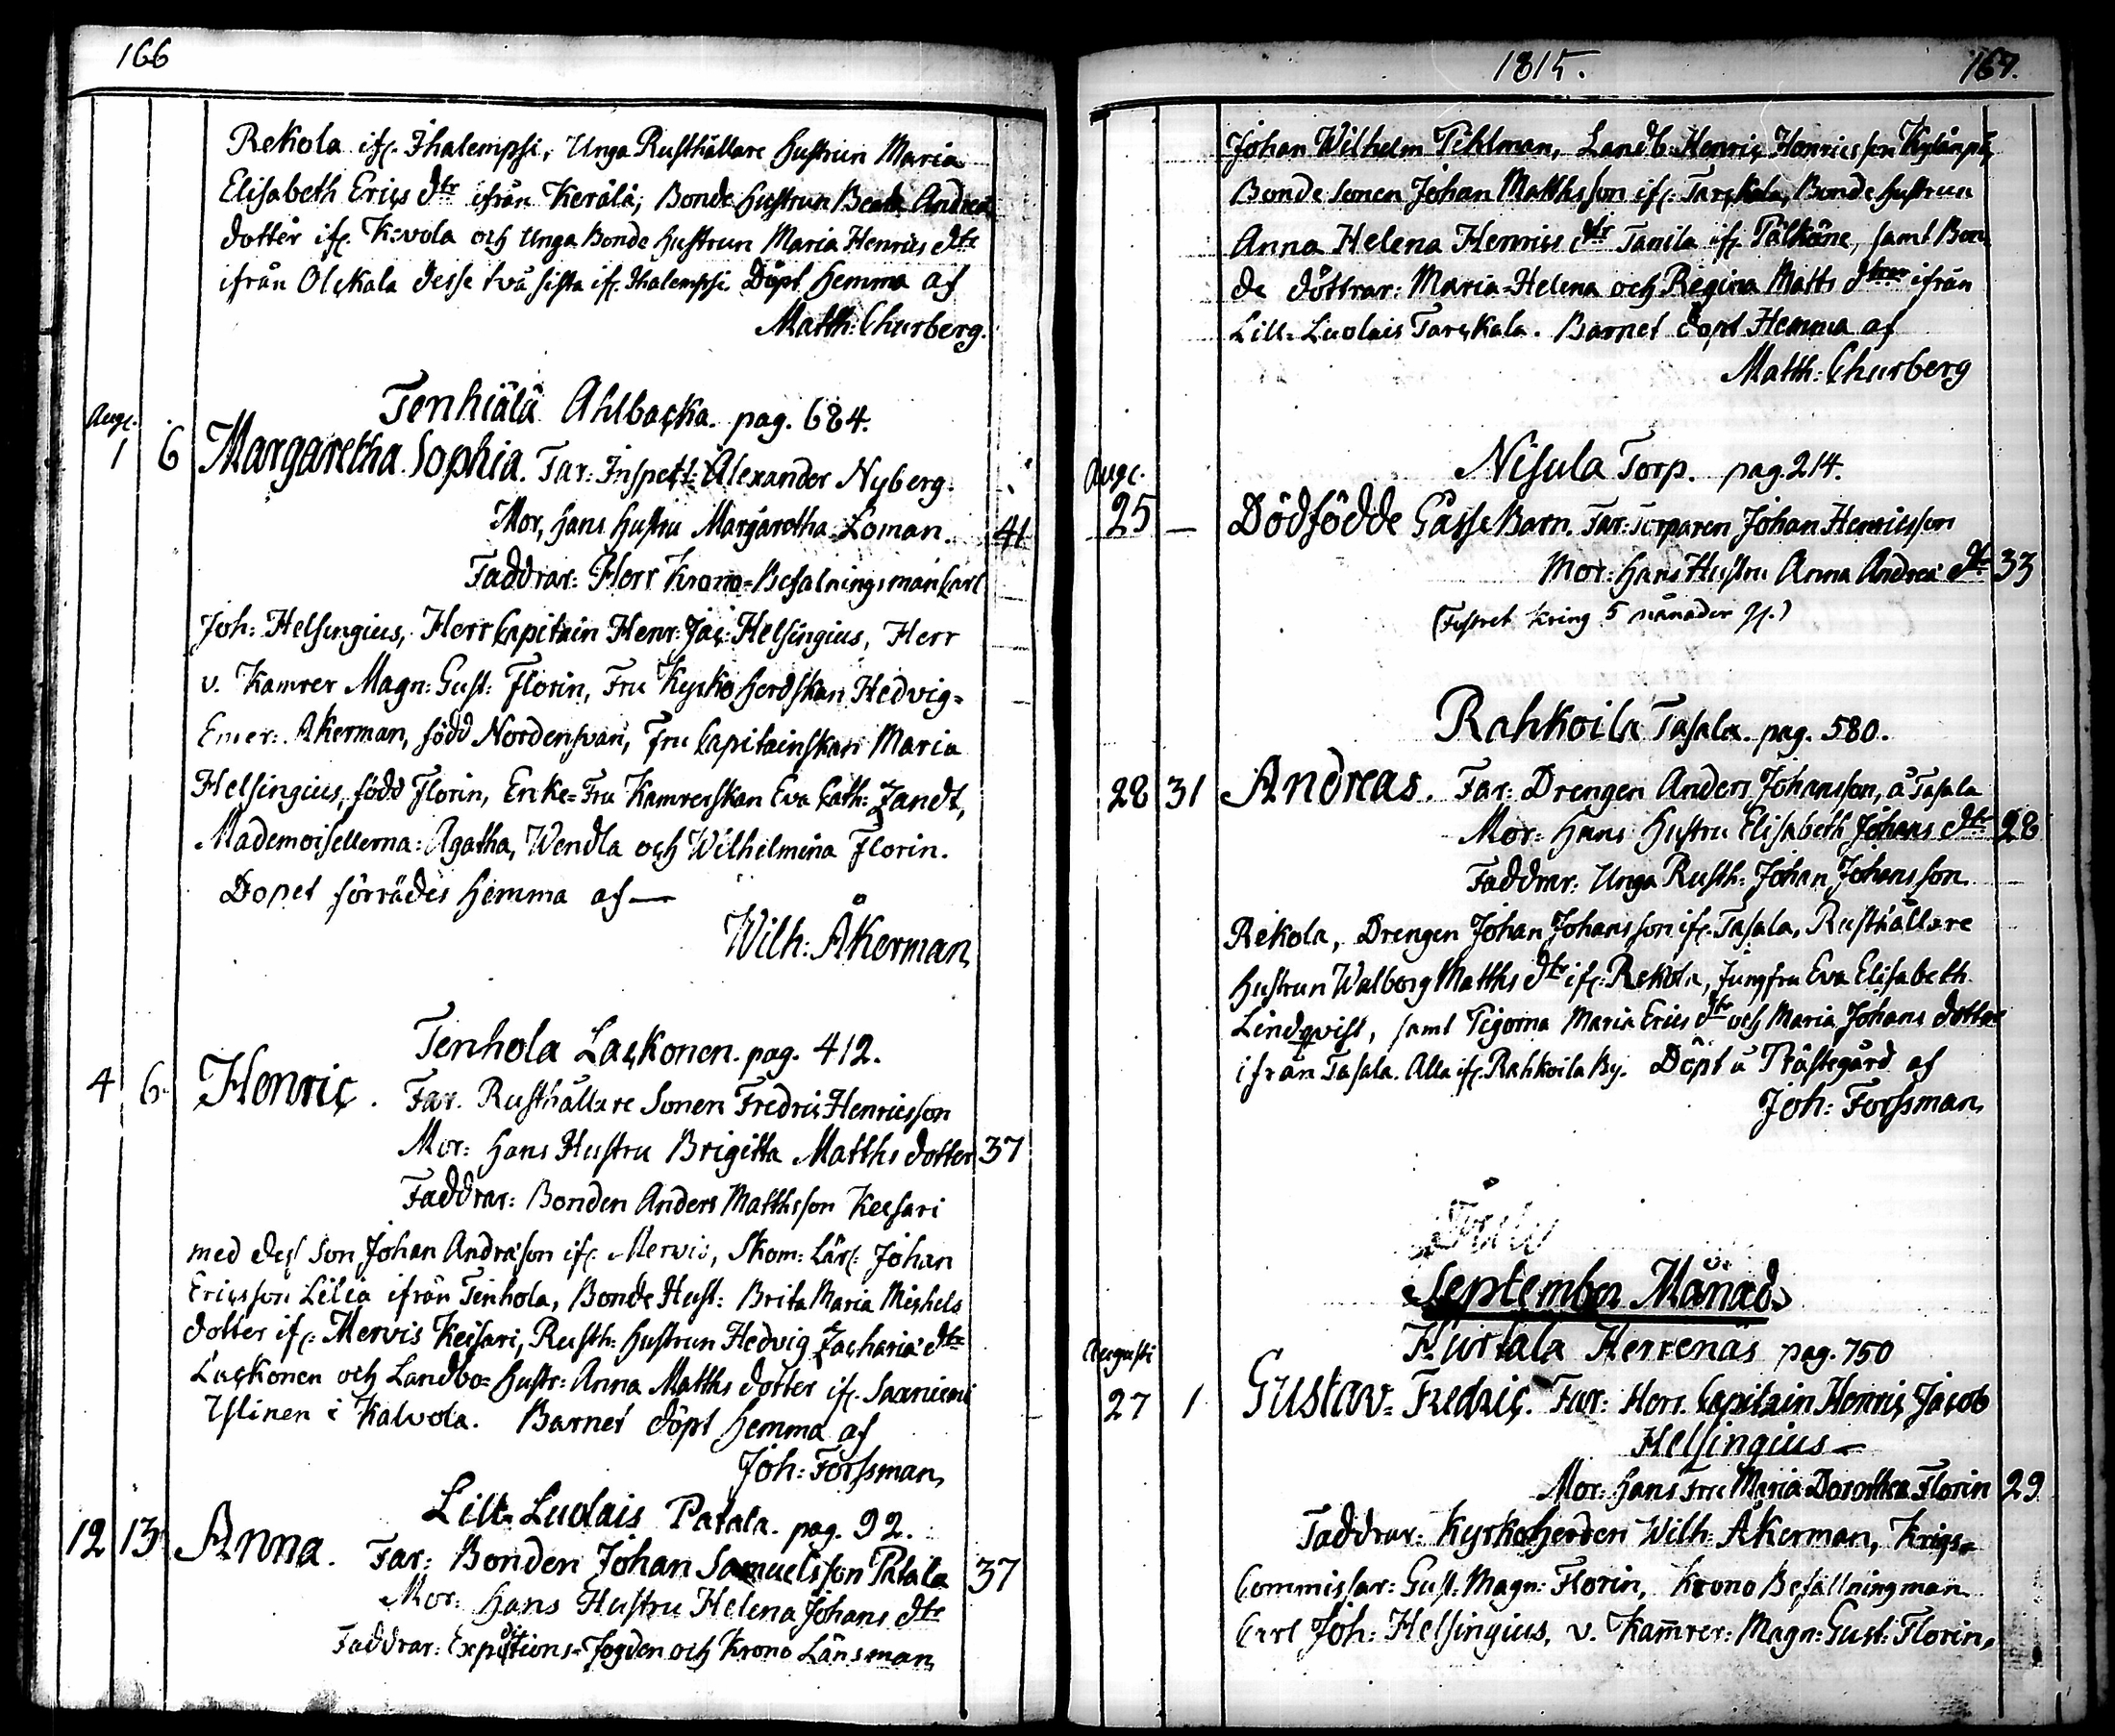 166
Rekola if: Ihalempsi, Unga Rusthållare hustrun Maria
Elisabeth Erics dtr ifrån Kerälä, Bonde hustrun Beata Andreæ
dotter if: K:vola och Unga Bonde hustrun Maria Henrics dtr
ifrån Olckala desse två sista if: Ihalempsi. Döpt hemma af
Matth: Churberg.
Tenhiälä Ahlbacka. pag. 684.
Aug:
1 6 Margaretha Sophia. Far: Inspekt: Alexander Nyberg.
Mor, hans hustru Margaretha Loman. 41
Faddrar: Herr Krono-Befalningsman Carl
Joh: Helsingius, Herr Capitain Henr: Jac: Helsingius, Herr
v. Kamrer Magn: Gust: Florin, Fru Kyrkoherdskan Hedvig-
Emer: Akerman, född Nordensvan, Fru Capitainskan Maria
Helsingius, född Florin, Enke-Fru Kamrerskan Eva Cath: Zandt,
Mademoisellerna: Agatha, Wendla och Wilhelmina Florin.
Dopet förrädes hemma af—
Wilh: Åkerman,
Tenhola Lackonen. pag. 412.
4 6 Henric. Far. Rusthållare Sonen Fredric Henricsson
Mor: hans Hustru Brigitta Matths dotter 37
Faddrar: Bonden Anders Matthsson Keisari
med des son Johan Andraeson if: Mervis, Skom: Lärl: Johan
Ericsson Lilia ifrån Tenhola, Bonde Hust: Brita Maria Michels
dotter if: Mervis Keisari, Rusth: hustrun Hedvig Zachariæ dtr
Lackonen och Landbo- hustr: Anna Matths dotter if: Saaniemi
Yslinen i Kalvola. Barnet döpt hemma af
Joh: Forssman,
Lill Luolais Patala. pag. 92.
12 13 Anna. Far: Bonden Johan Samuelsson Patala 37
Mor: hans Hustru Helena Johans dtr
Faddrar: Expeditions-Fogden och Krono Länsman
1815. 167.
Johan Wilhelm Pihlman, Landb: Henric Henricsson Kylänpä,
Bonde Sonen Johan Matthsson if: Tarckala, Bonde hustrun
Anna Helena Henrics dtr Tanila if: Pälkäne, samt Bon
de döttrar: Maria-Helena och Regina Matts dtrar ifrån
Lill-Luolais Tarckala. Barnet döpt Hemma af
Matth: Churberg
Nisula Torp. pag. 214.
Aug:
25 — Dödfödde Gåsse Barn. Far: Torparen Johan Henricsson
Mor: hans Hustru Anna Andreæ dtr 33
(Fostret kring 5 månader gl.)
Rahkoila Tasala. pag. 580.
28 31 Andreas. Far: Drengen Anders Johansson, å Tasala
Mor: hans Hustru Elisabeth Johans dtr 28
Faddrar: Unga Rusth: Johan Johansson
Rekola, Drengen Johan Johansson if: Tasala, Rusthållare
hustrun Walborg Matths dtr if: Rekola, Jungfru Eva Elisabeth
Lindqvist, samt Pigorna Maria Erics dtr och Maria Johans dotter
ifrån Tasala. Alla if: Rahkoila By. Döpt å Prästegård af
Joh: Forssman,
September Månad
Kurtala Herrenäs pag. 750
Augusti
27 1 Gustav-Fredric. Far: Herr Capitain Henric Jacob
Helsingius—
Mor: hans Fru Maria Dorothea Florin 29
Faddrar: Kyrkoherden Wilh: Åkerman, Krigs-
Commissar: Gust: Magn: Florin, Krono Befallningman
Carl Joh: Helsingius, v. Kamrer: Magn: Gust: Florin,